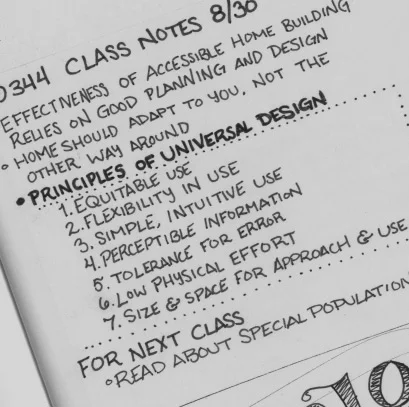 0344 CLASS NOTES 8/30
EFFECTIVENESS OF ACCESSIBLE HOME BUILDING
RELIES ON GOOD PLANNING AND DESIGN
° HOME SHOULD ADAPT TO YOU, NOT THE
OTHER WAY AROUND
• PRINCIPLES OF UNIVERSAL DESIGN
1. EQUITABLE USE
2. FLEXIBILITY IN USE
3. SIMPLE, INTUITIVE USE
4. PERCEPTIBLE INFORMATION
5. TOLERANCE FOR ERROR
6. LOW PHYSICAL EFFORT
7. SIZE & SPACE FOR APPROACH & USE
FOR NEXT CLASS
° READ ABOUT SPECIAL POPULATION